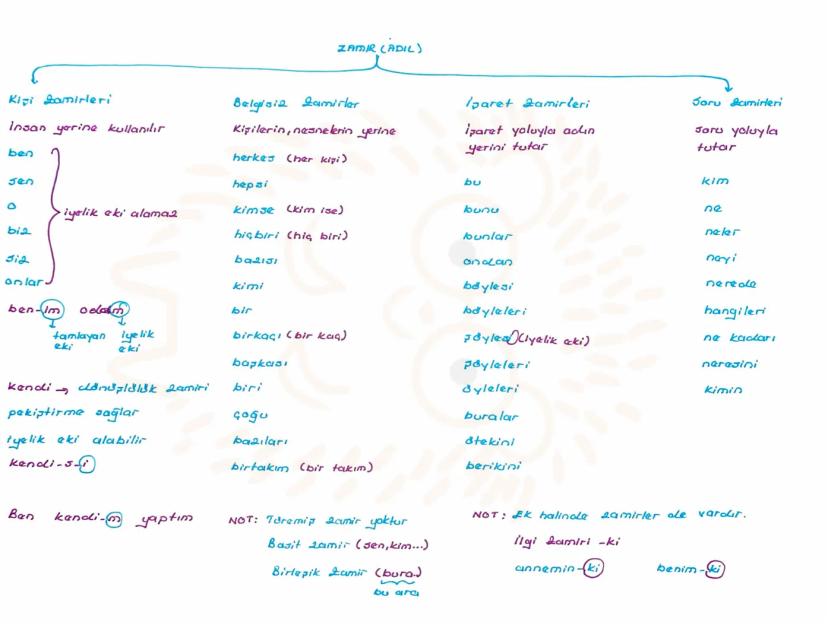 ZAMİR (ADIL)
Kişi zamirleri
İnsan yerine kullanılır
ben
sen
o
biz
siz
onlar
iyelik eki alamaz
ben-im odam
tamlayan eki
iyelik eki
kendi → dönüşlülük zamiri
pekiştirme sağlar
iyelik eki alabilir
kendi-s-i
Ben kendi-m yaptım
Belgisiz zamirler
Kişilerin, nesnelerin yerine
herkes (her kişi)
hepsi
kimse (kim ise)
hiçbiri (hiç biri)
bazısı
kimi
bir
birkaçı (bir kaç)
başkası
biri
çoğu
bazıları
birtakım (bir takım)
NOT: Türemiş zamir yoktur
Basit zamir (sen, kim...)
Birleşik zamir (bura)
bu ara
İşaret zamirleri
İşaret yoluyla adın
yerini tutar
bu
bunu
bunlar
ondan
böylesi
böyleleri
(iyelik eki)
şöyleleri
öyleleri
buralar
ötekini
berikini
NOT: Ek halinde zamirler de vardır.
İlgi zamiri -ki
annemin-ki benim-ki
Soru zamirleri
Soru yoluyla
tutar
kim
ne
neler
neyi
nerede
hangileri
ne kadarı
neresini
kimin